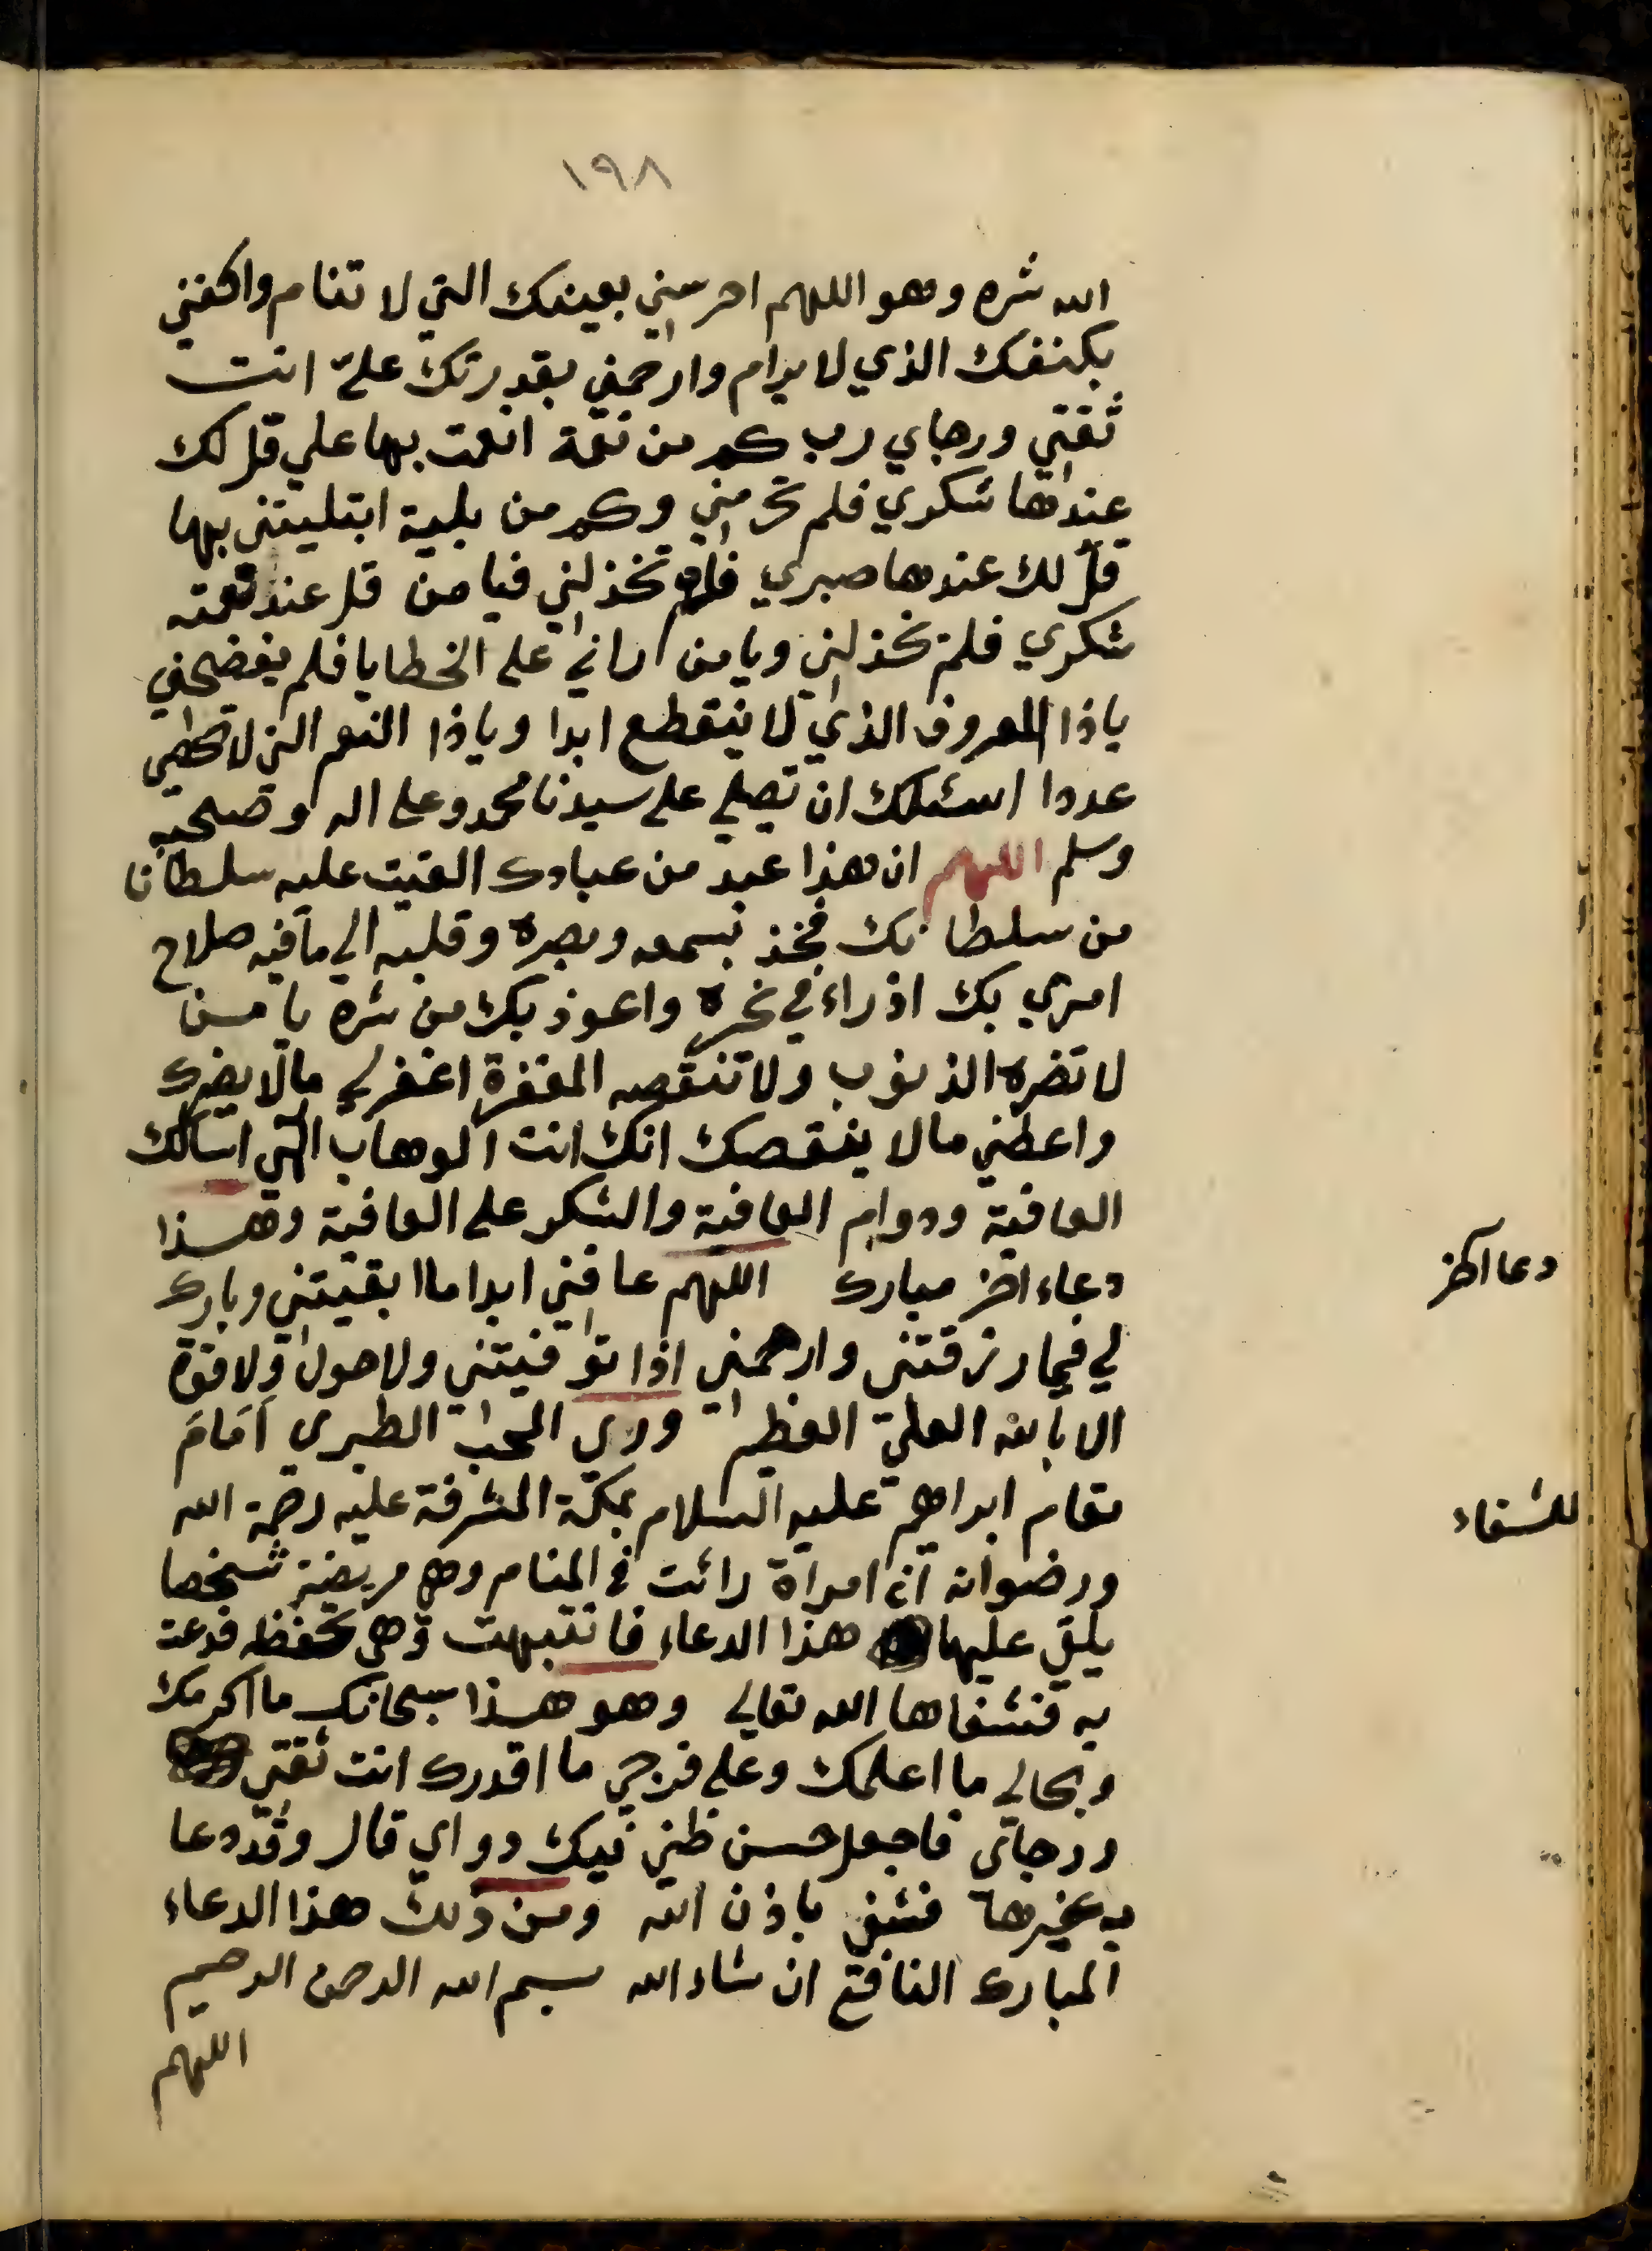 ١٩٨
الله شره وهو اللهم احرسني بعينك التي لا تنام واكنفني
بكنفك الذي لا يرام وارحمني بقدرتك عليّ انت
ثقتي ورجاي رب كم من نعمة انعمت بها علي قل لك
عندها شكري فلم تحرمني وكم من بلية ابتليتني بها
قل لك عندها صبري فلم تخذلني فيا من قل عند نعمته
شكري فلم تخذلني ويا من راني على الخطايا فلم يفضحني
ياذا المعروف الذي لا ينقطع ابدا وياذا النعم التي لا تحصي
عددا اسئلك ان تصلي على سيدنا محمد وعلى اله وصحبه
وسلم اللهم ان هذا عبد من عبادك القيت عليه سلطانا
من سلطانك فخذ بسمعه وبصره وقلبه الي ما فيه صلاح
امري بك اذراء في نحره واعوذ بك من شره يا من
لا تضره الذنوب ولا تنقصه المغفرة اغفر لي مالا يضرك
واعطني مالا ينقصك انك انت الوهاب الهي اسالك
العافية ودوام العافية والشكر على العافية وهذا
دعاء اخر مبارك اللهم عافني ابدا ما ابقيتني وبارك
لي فيما رزقتني وارحمني اذا توفيتني ولا حول ولا قوة
الا بالله العليّ العظيم وروي المحب الطبري اَمَامَ
مقام ابراهيم عليه السلام بمكة المشرفة عليه رحمة الله
ورضوانه ان امراة رائت في المنام وهي مريضة شخصا
يلقي عليها هذا الدعاء فانتبهت وهي تحفظه فدعت
به فشفاها الله تعالي وهو هذا سبحانك ما اكرمك
وبحالي ما اعلمك وعلى فرجي ما اقدرك انت ثقتي
ورجاي فاجعل حسن ظني فيك دواي قال وقد دعا
به غيرها فشفي باذن الله ومن ذلك هذا الدعاء
المبارك النافع ان شاء الله بسم الله الرحمن الرحيم
اللهم
دعا اخر
للشفاء